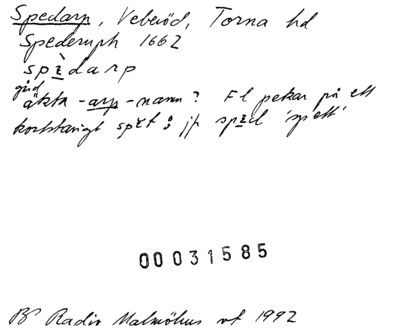 Spedarp, Veberöd, Torna hd
Spedernph 1662
spèdarp
gid
äkta -arp-namn? Fl pekar på ett
kortstavigt spet; jf sped 'spett'
00031585
BP Radio Malmöhus vt 1992